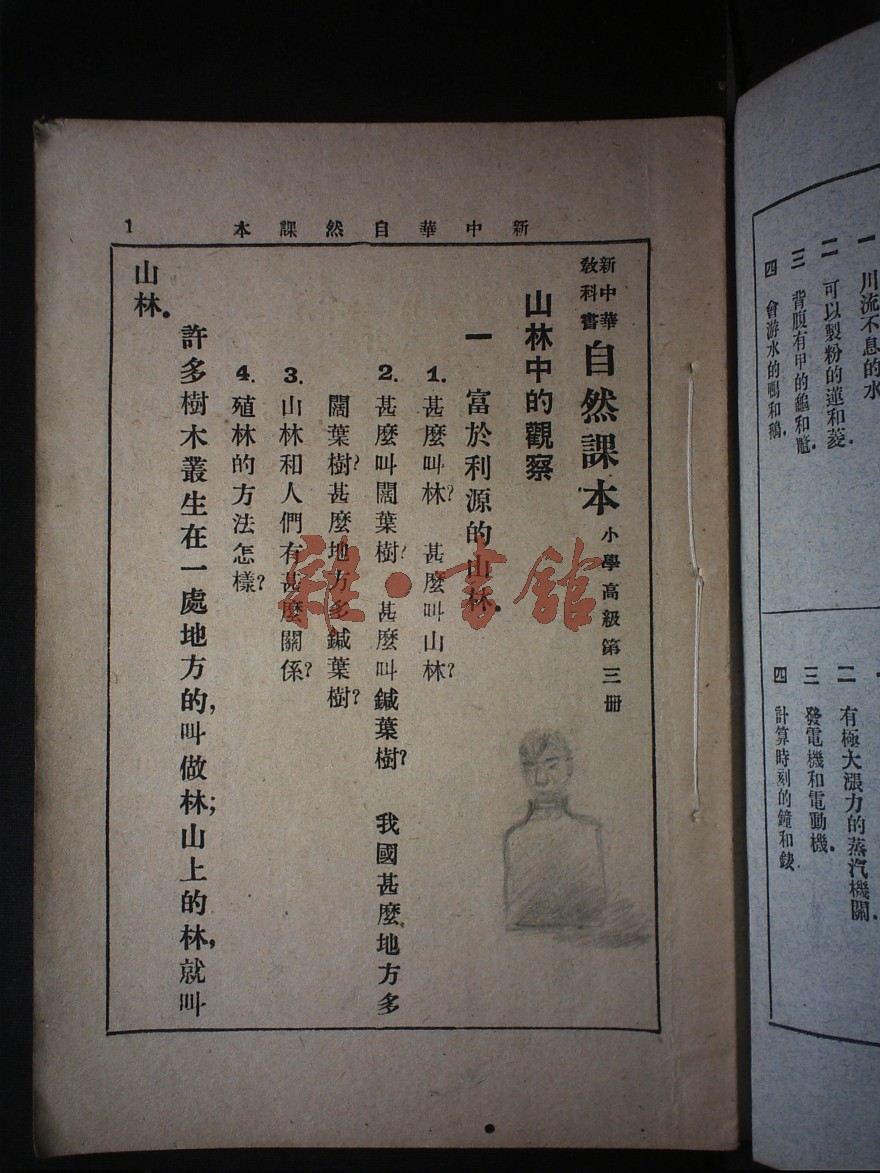 川流不息的水
二 可以製粉的蓮和菱.
三 背腹有甲的龜和鼈.
四 會游水的鴨和鵝.
二 有極大漲力的蒸汽機關.
三 發電機和電動機.
四 計算時刻的鐘和錶
新中華自然課本
1
新中華
教科書
自然課本 小學高級第三册
山林中的觀察
一 富於利源的山林.
1. 甚麼叫林? 甚麼叫山林?
2. 甚麼叫闊葉樹? 甚麼叫鍼葉樹? 我國甚麼地方多
闊葉樹?甚麼地方多鍼葉樹?
3. 山林和人們有甚麼關係?
4. 殖林的方法怎樣?
許多樹木叢生在一處地方的,叫做林;山上的林,就叫
山林.
雜·書館